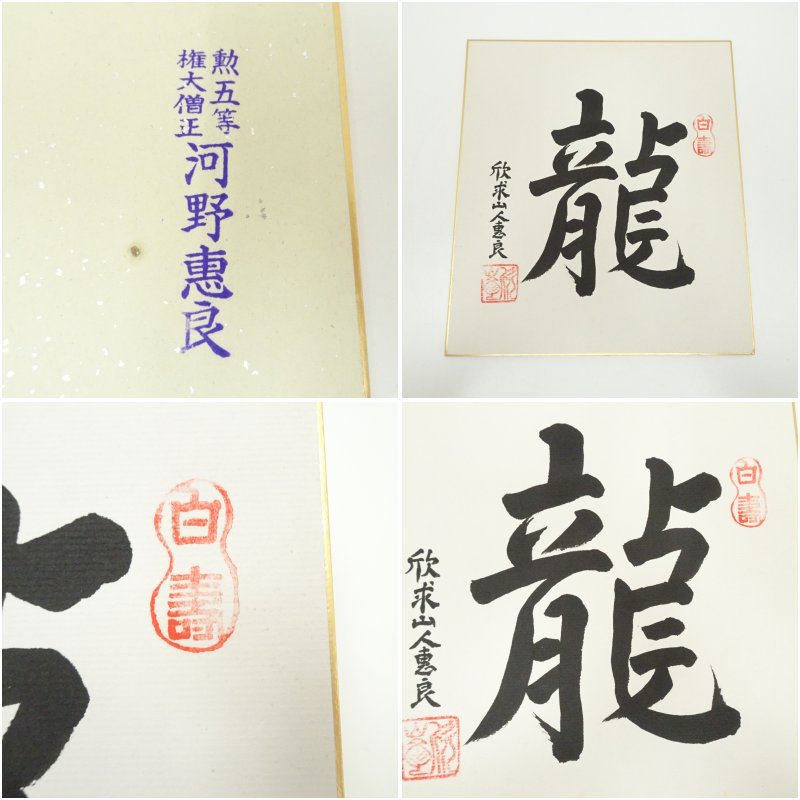 勲五等
権大僧正
河野惠良
龍
白壽
欣求山人惠良
白壽
龍
白壽
欣求山人惠良